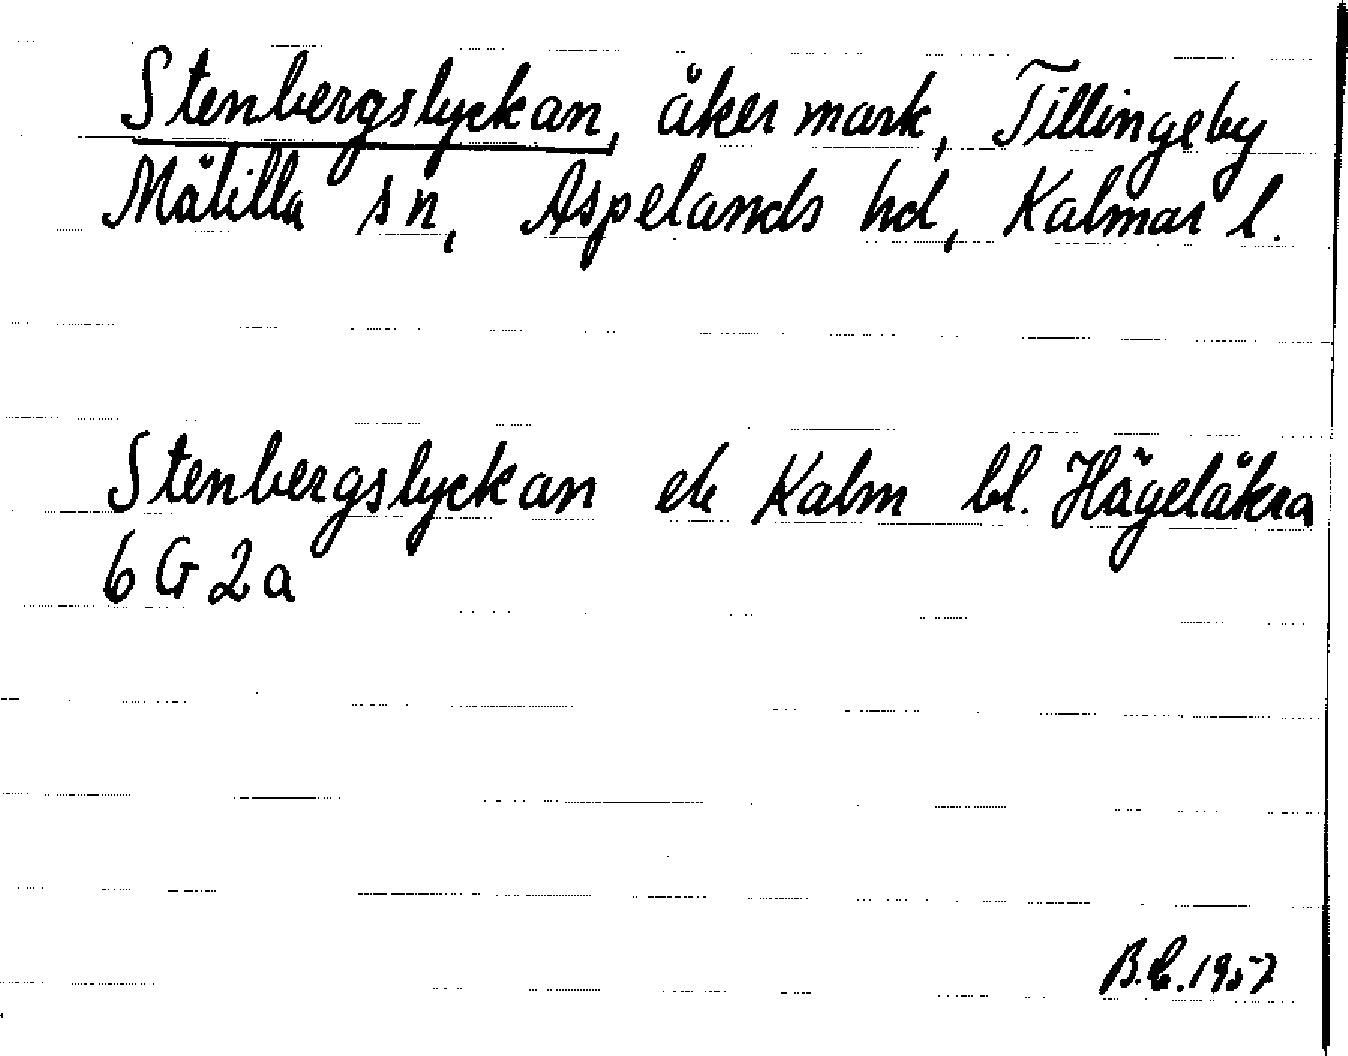 Stenbergslyckan, åkermark, Tillingeby
Målilla sn, Aspelands hd, Kalmar l.
Stenbergslyckan ek Kalm bl. Hägelåkra
6 G 2a
B.C. 1957